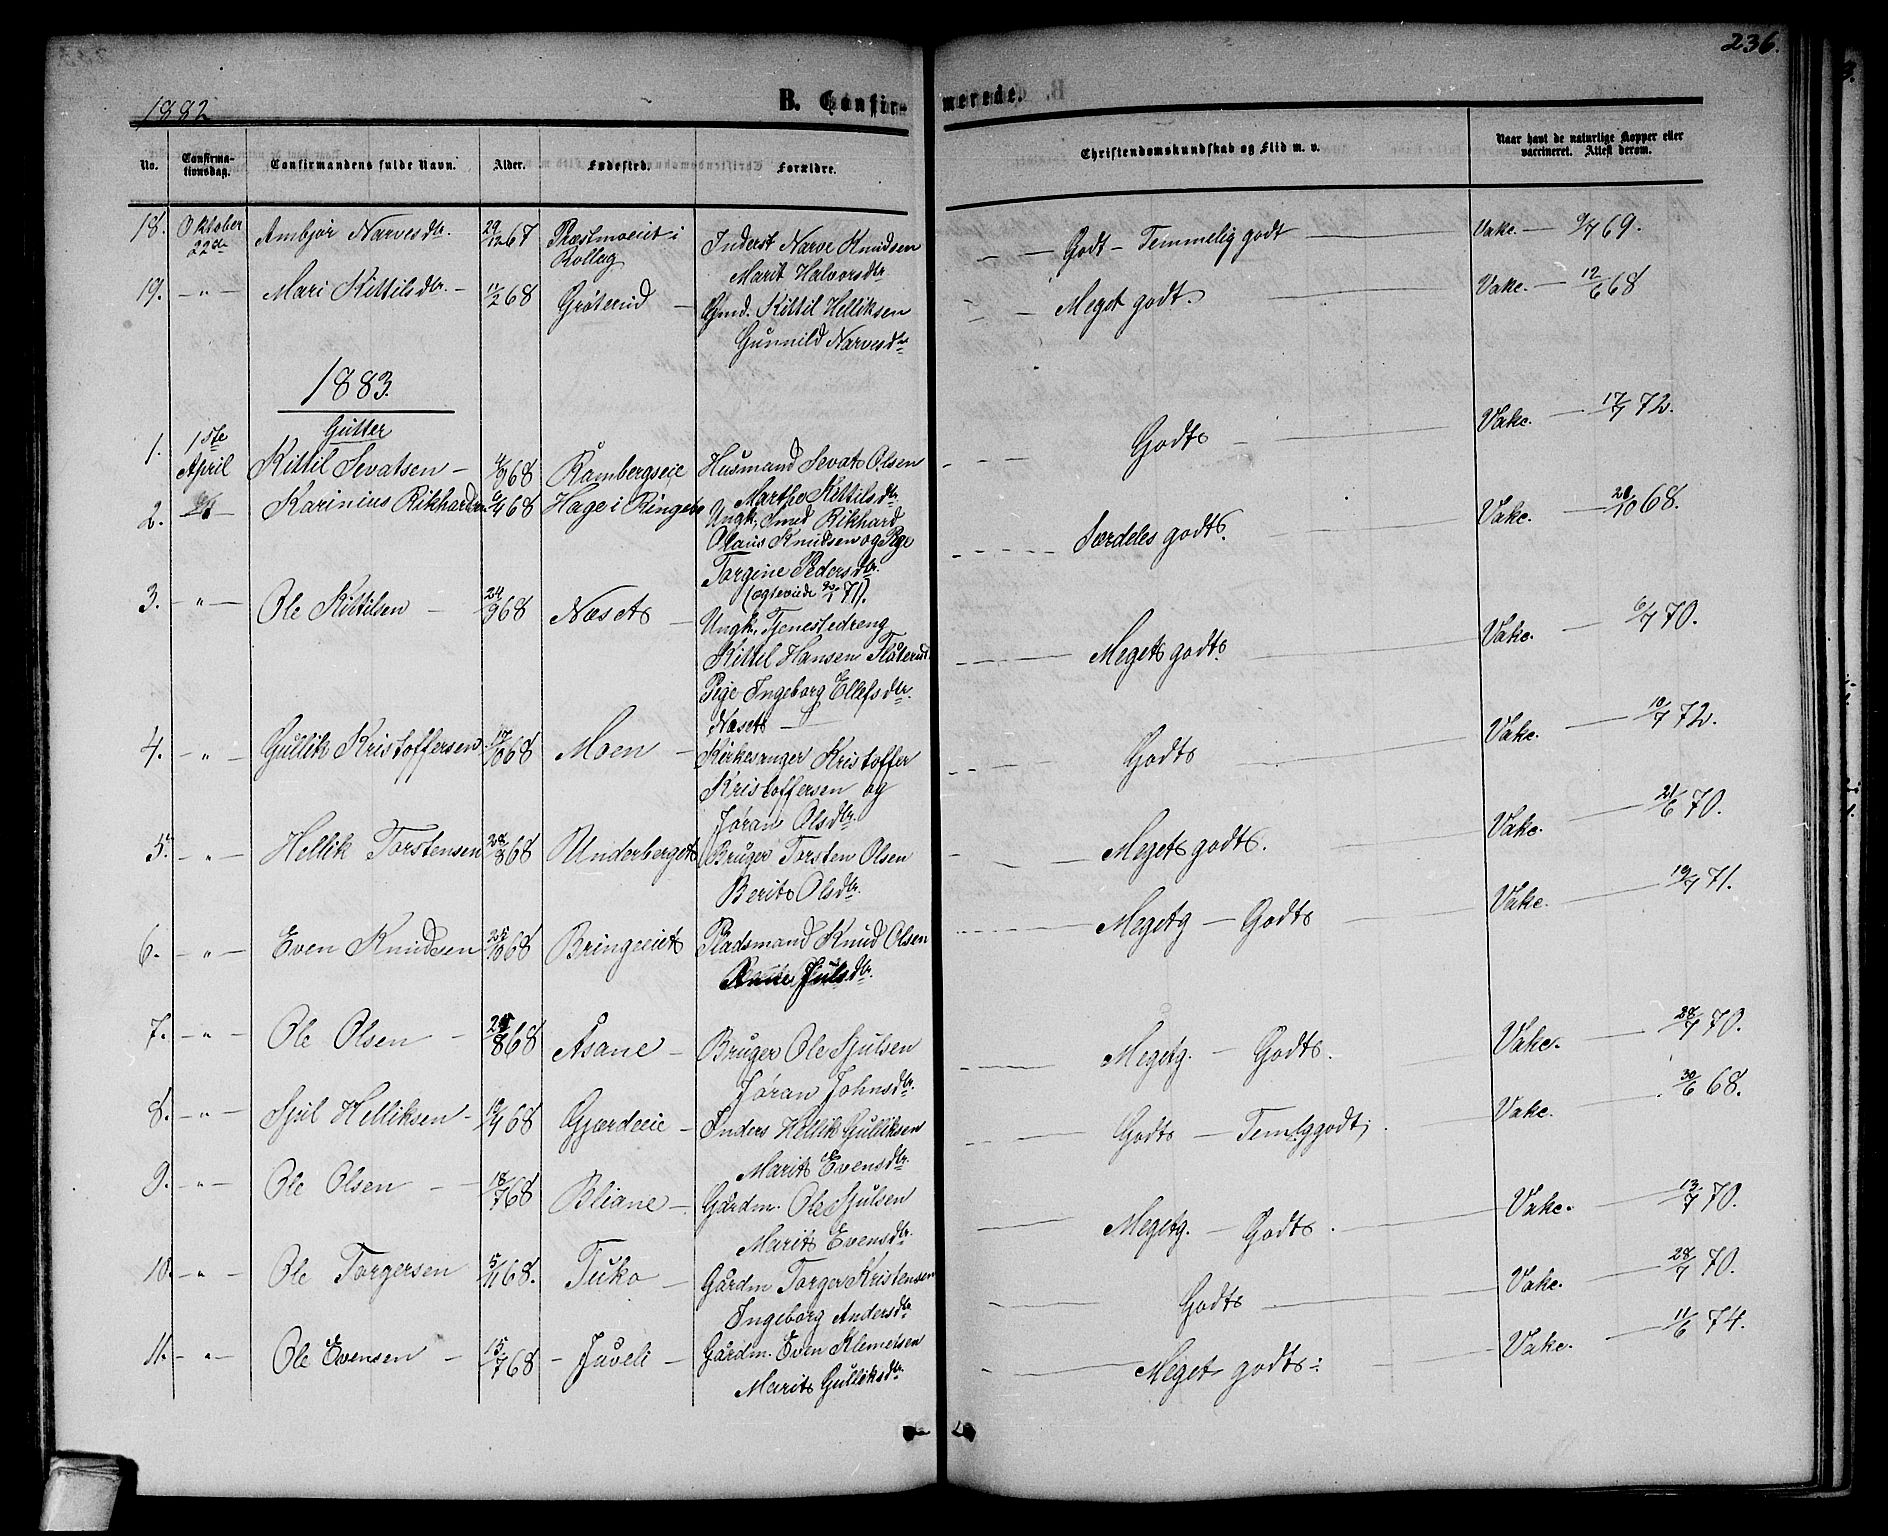 236.
1882
B. Confirmerede.
No. Confirmationsdag. Confirmandens fulde Navn. Alder. Fødested. Forældre. Christendomskundskab og Flid m. v. Naar havt de naturlige Kopper eller vaccineret. Attest derom.
18. Oktober 22de Ambjør Narvesdtr. 29/12 67 Præstmoeiet i Rollag Inderst Narve Knudsen Marit Halvorsdtr Godt - Temmelig godt Vakc. 9/7 69.
19. " Mari Kittilsdtr. 11/2 68 Gröterud Gmd. Kittil Helliksen Gunnild Narvesdtr Meget godt. Vakc. 12/6 68
1883.
Gutter
1. 1ste April Kittil Sevatsen 4/9 68 Rambergseie Husmand Sevat Olsen Marthe Kittilsdtr Godt Vakc. 17/7 72.
2. Karinius Rikhardsen 6/4 68 Hage i Ringebo Ungk. Smed Rikhard Olaus Knudsen og Pige Torgine Pedersdtr. (ægteviede 20/1 71). Særdeles godt. Vakc. 20/10 68.
3. " Ole Kittilsen 24/9 68 Næset Ungk. Tjenestedreng Kittil Hansen Flåterud Pige Ingeborg Ellefsdtr. Næset Meget godt. Vakc. 6/7 70.
4. " Gullik Kristoffersen 17/10 68 Moen Kirkesanger Kristoffer Kristoffersen og Jøran Olsdtr. Godt Vakc. 10/7 72.
5. " Hellik Torstensen 28/8 68 Underberget Bruger Torsten Olsen Berit Olsdtr. Meget godt. Vakc. 21/6 70.
6. " Even Knudsen 25/10 68 Bringeeiet Pladsmand Knud Olsen Meget g. - Godt Vakc. 19/7 71.
7. " Ole Olsen 25/8 68 Åsane Bruger Ole Sjulsen Jøran Johnsdtr. Meget g. - Godt. Vakc. 28/7 70.
8. " Sjul Helliksen 19/4 68 Gjærdeeie Inders Hellik Gulliksen Marit Evensdtr. Godt - Temlg godt; Vakc. 30/6 68.
9. " Ole Olsen 18/7 68 Bliane Gårdm. Ole Sjulsen Marit Evensdtr. Meget g. - Godt. Vakc. 13/7 70.
10. " Ole Torgersen 5/11 68. Tuko Gårdm Torger Kristensen Ingeborg Andersdtr Godt Vakc. 28/7 70.
11. " Ole Evensen 15/7 68 Juveli Gårdm. Even Klemetsen Marit Gulliksdtr Meget godt: Vakc. 11/6 74.